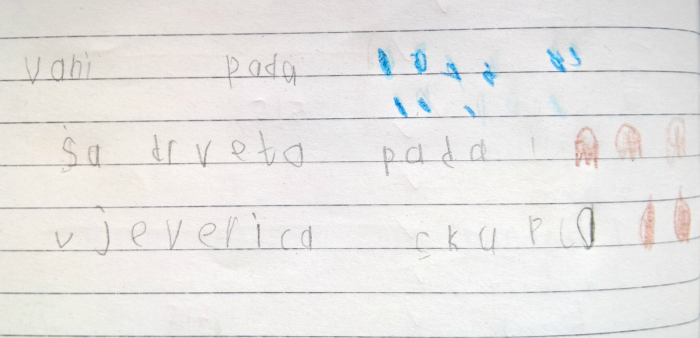 vani pada
sa drveta pada
vjeverica skuplja